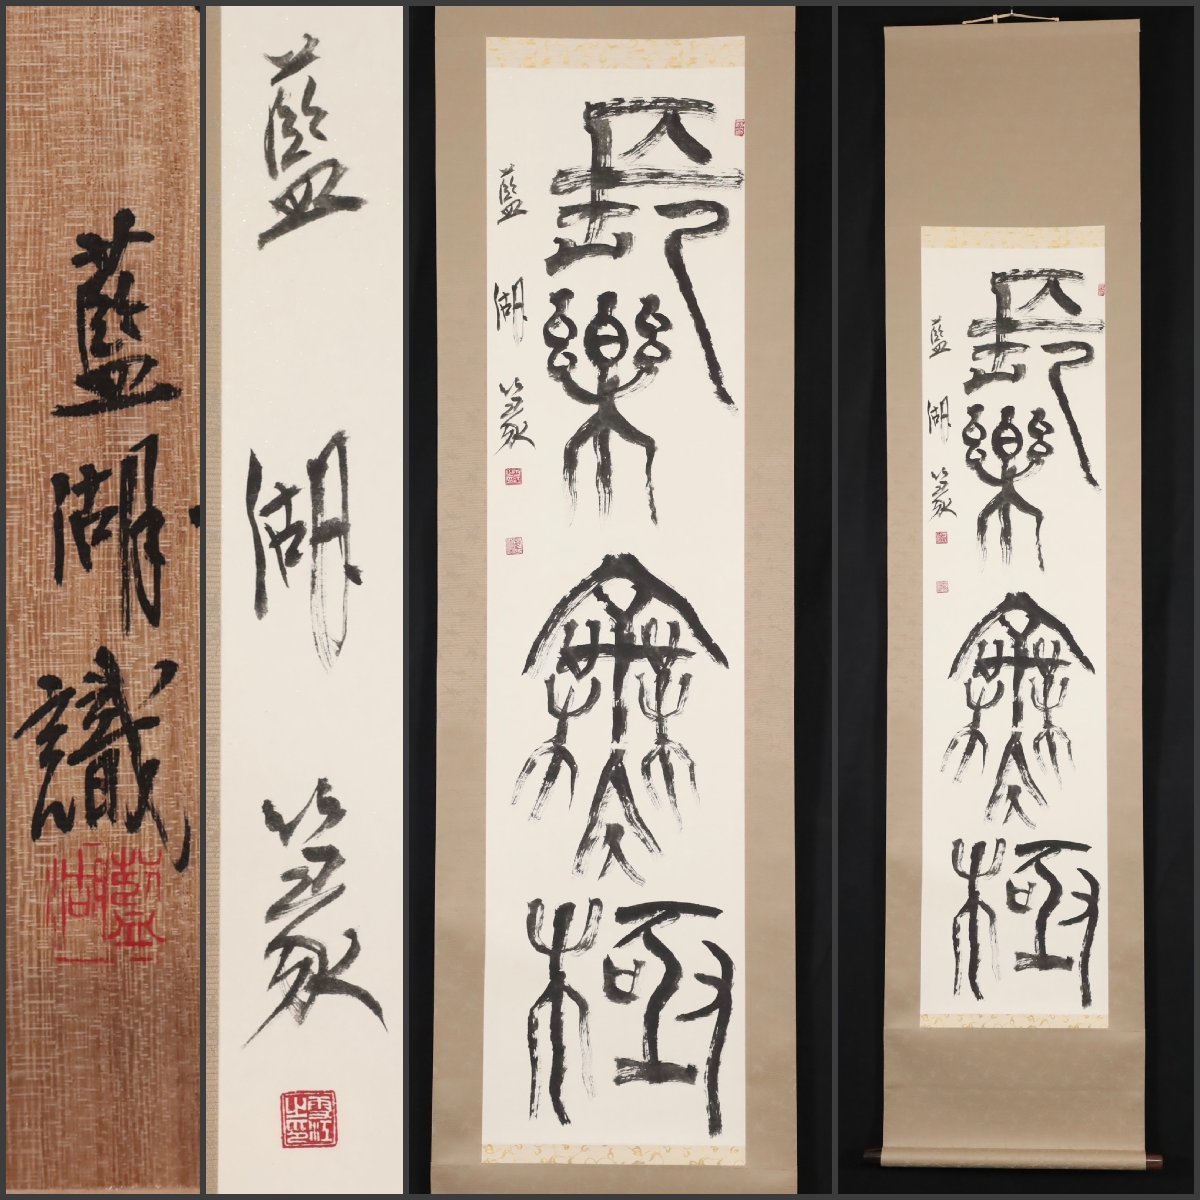 藍湖識
藍湖
藍湖篆
長樂無極
藍湖篆
長樂無極
藍湖篆